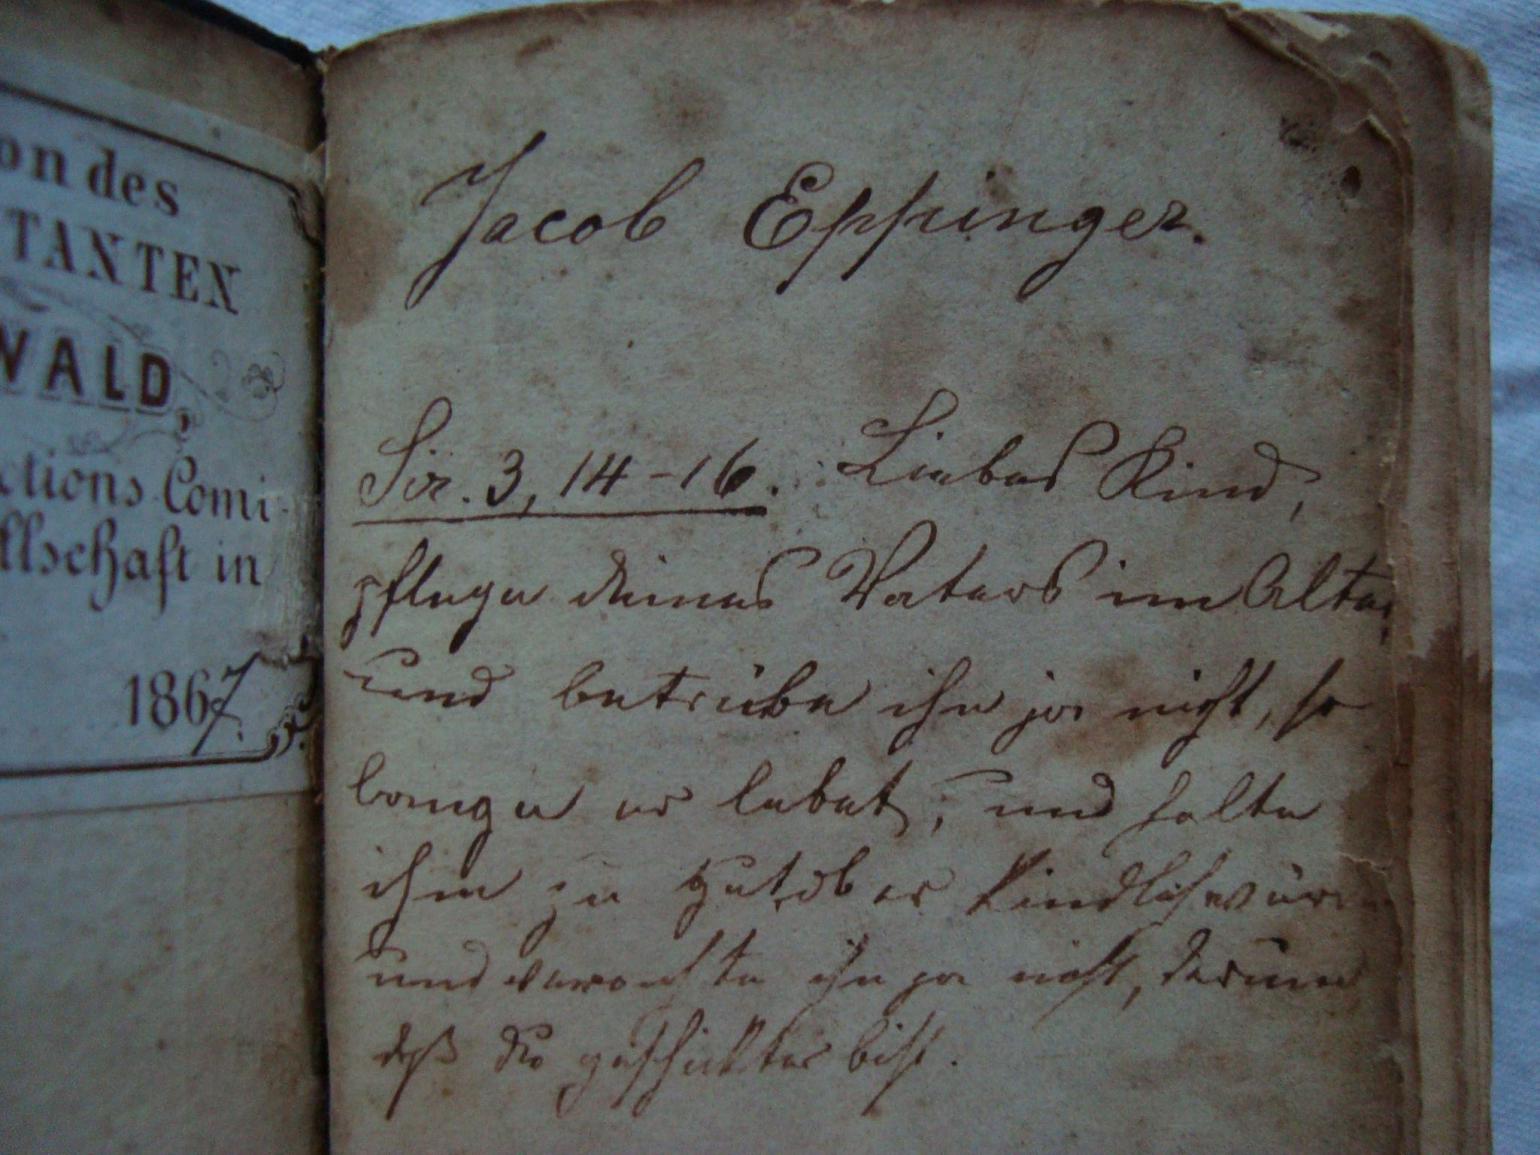 on des
TANTEN
WALD,
ctions Comi-
llschaft in
1867.
Jacob Eppinger.
Sir. 3, 14-16. Liebes Kind,
pflege deines Vaters im Alter,
und betrübe ihn ja nicht, so
lange er lebet; und halte
ihm zu gut, ob er kindisch würde
und verachte ihn ja nicht, darum
daß du geschickter bist.